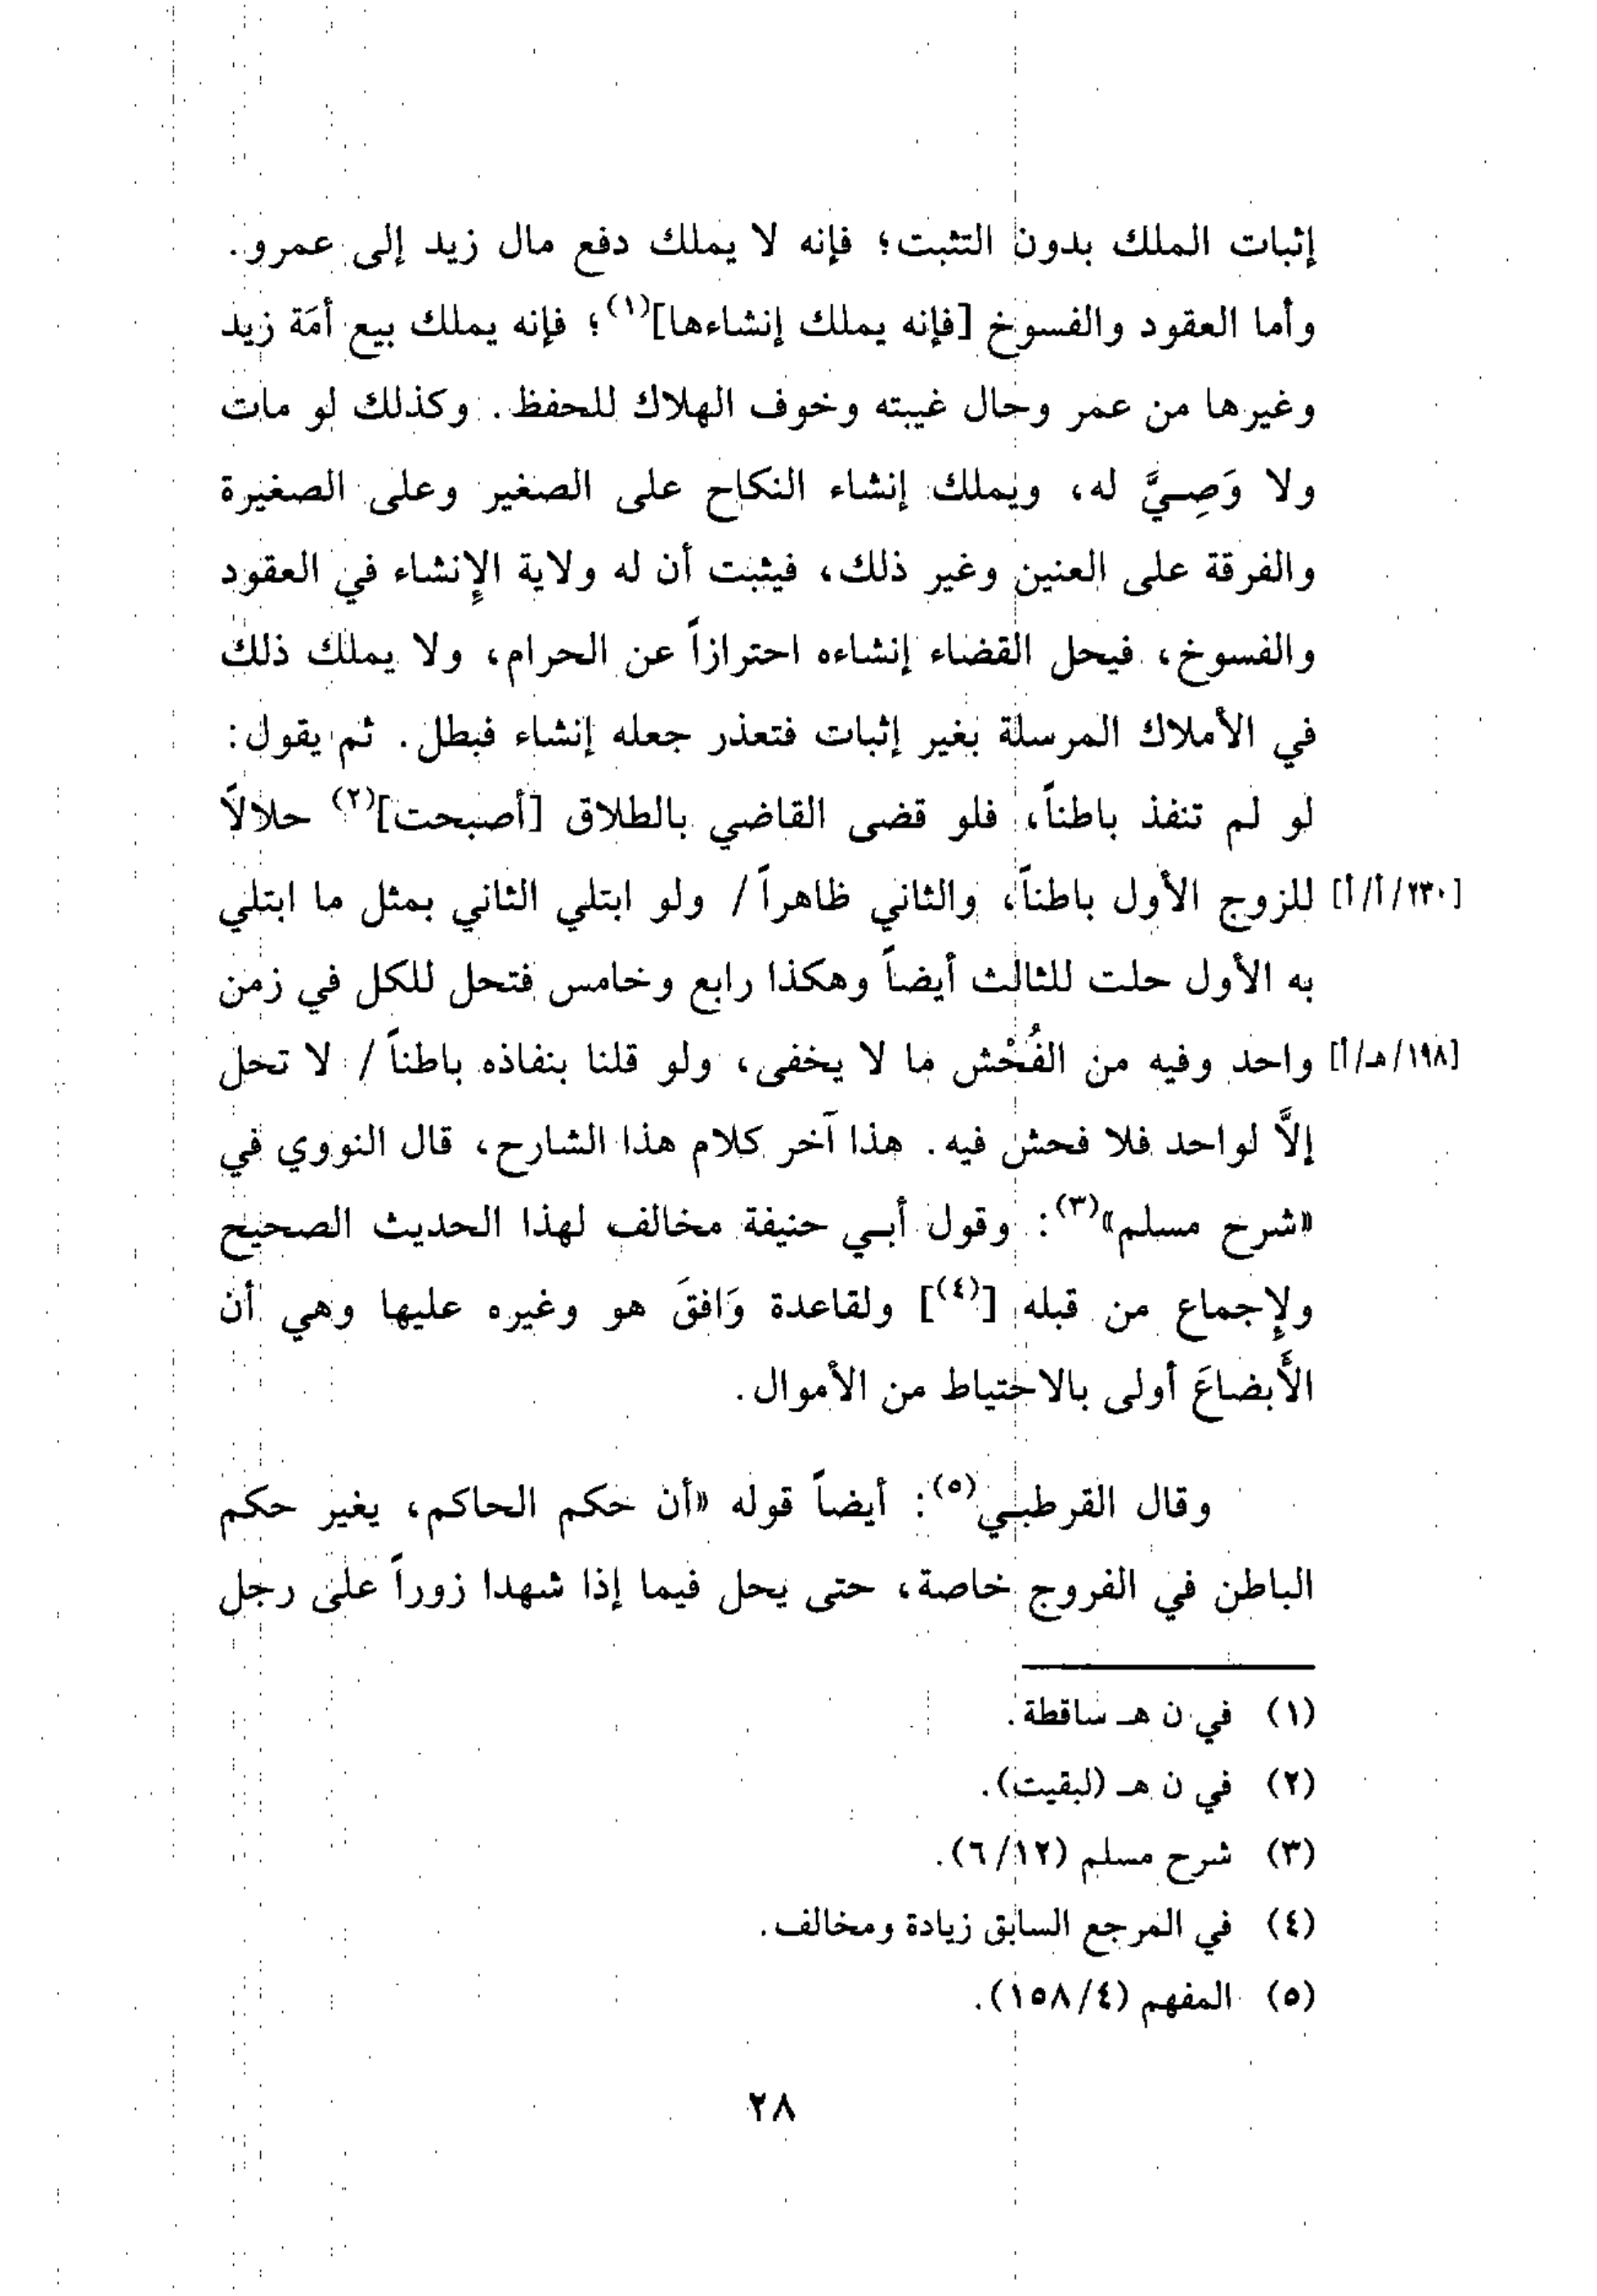 إثبات الملك بدون التثبت؛ فإنه لا يملك دفع مال زيد إلى عمرو.
وأما العقود والفسوخ [فإنه يملك إنشاءها](١)؛ فإنه يملك بيع أمَة زيد
وغيرها من عمر وحال غيبته وخوف الهلاك للحفظ. وكذلك لو مات
ولا وَصِيَّ له، ويملك إنشاء النكاح على الصغير وعلى الصغيرة
والفرقة على العنين وغير ذلك، فيثبت أن له ولاية الإنشاء في العقود
والفسوخ، فيحل القضاء إنشاءه احترازاً عن الحرام، ولا يملك ذلك
في الأملاك المرسلة بغير إثبات فتعذر جعله إنشاء فبطل. ثم يقول:
لو لم تنفذ باطناً، فلو قضى القاضي بالطلاق [أصبحت](٢) حلالاً
[٢٣٠/أ/أ] للزوج الأول باطناً، والثاني ظاهراً / ولو ابتلي الثاني بمثل ما ابتلي
به الأول حلت للثالث أيضاً وهكذا رابع وخامس فتحل للكل في زمن
[١٩٨/هـ/أ] واحد وفيه من الفُحْش ما لا يخفى، ولو قلنا بنفاذه باطناً / لا تحل
إلَّا لواحد فلا فحش فيه. هذا آخر كلام هذا الشارح، قال النووي في
«شرح مسلم»(٣): وقول أبي حنيفة مخالف لهذا الحديث الصحيح
ولإجماع من قبله [(٤)] ولقاعدة وَافقَ هو وغيره عليها وهي أن
الأَبضاعَ أولى بالاحتياط من الأموال.
وقال القرطبي(٥): أيضاً قوله «أن حكم الحاكم، يغير حكم
الباطن في الفروج خاصة، حتى يحل فيما إذا شهدا زوراً على رجل
(١) في ن هـ ساقطة.
(٢) في ن هـ (لبقيت).
(٣) شرح مسلم (٦/١٢).
(٤) في المرجع السابق زيادة ومخالف.
(٥) المفهم (١٥٨/٤).
٢٨